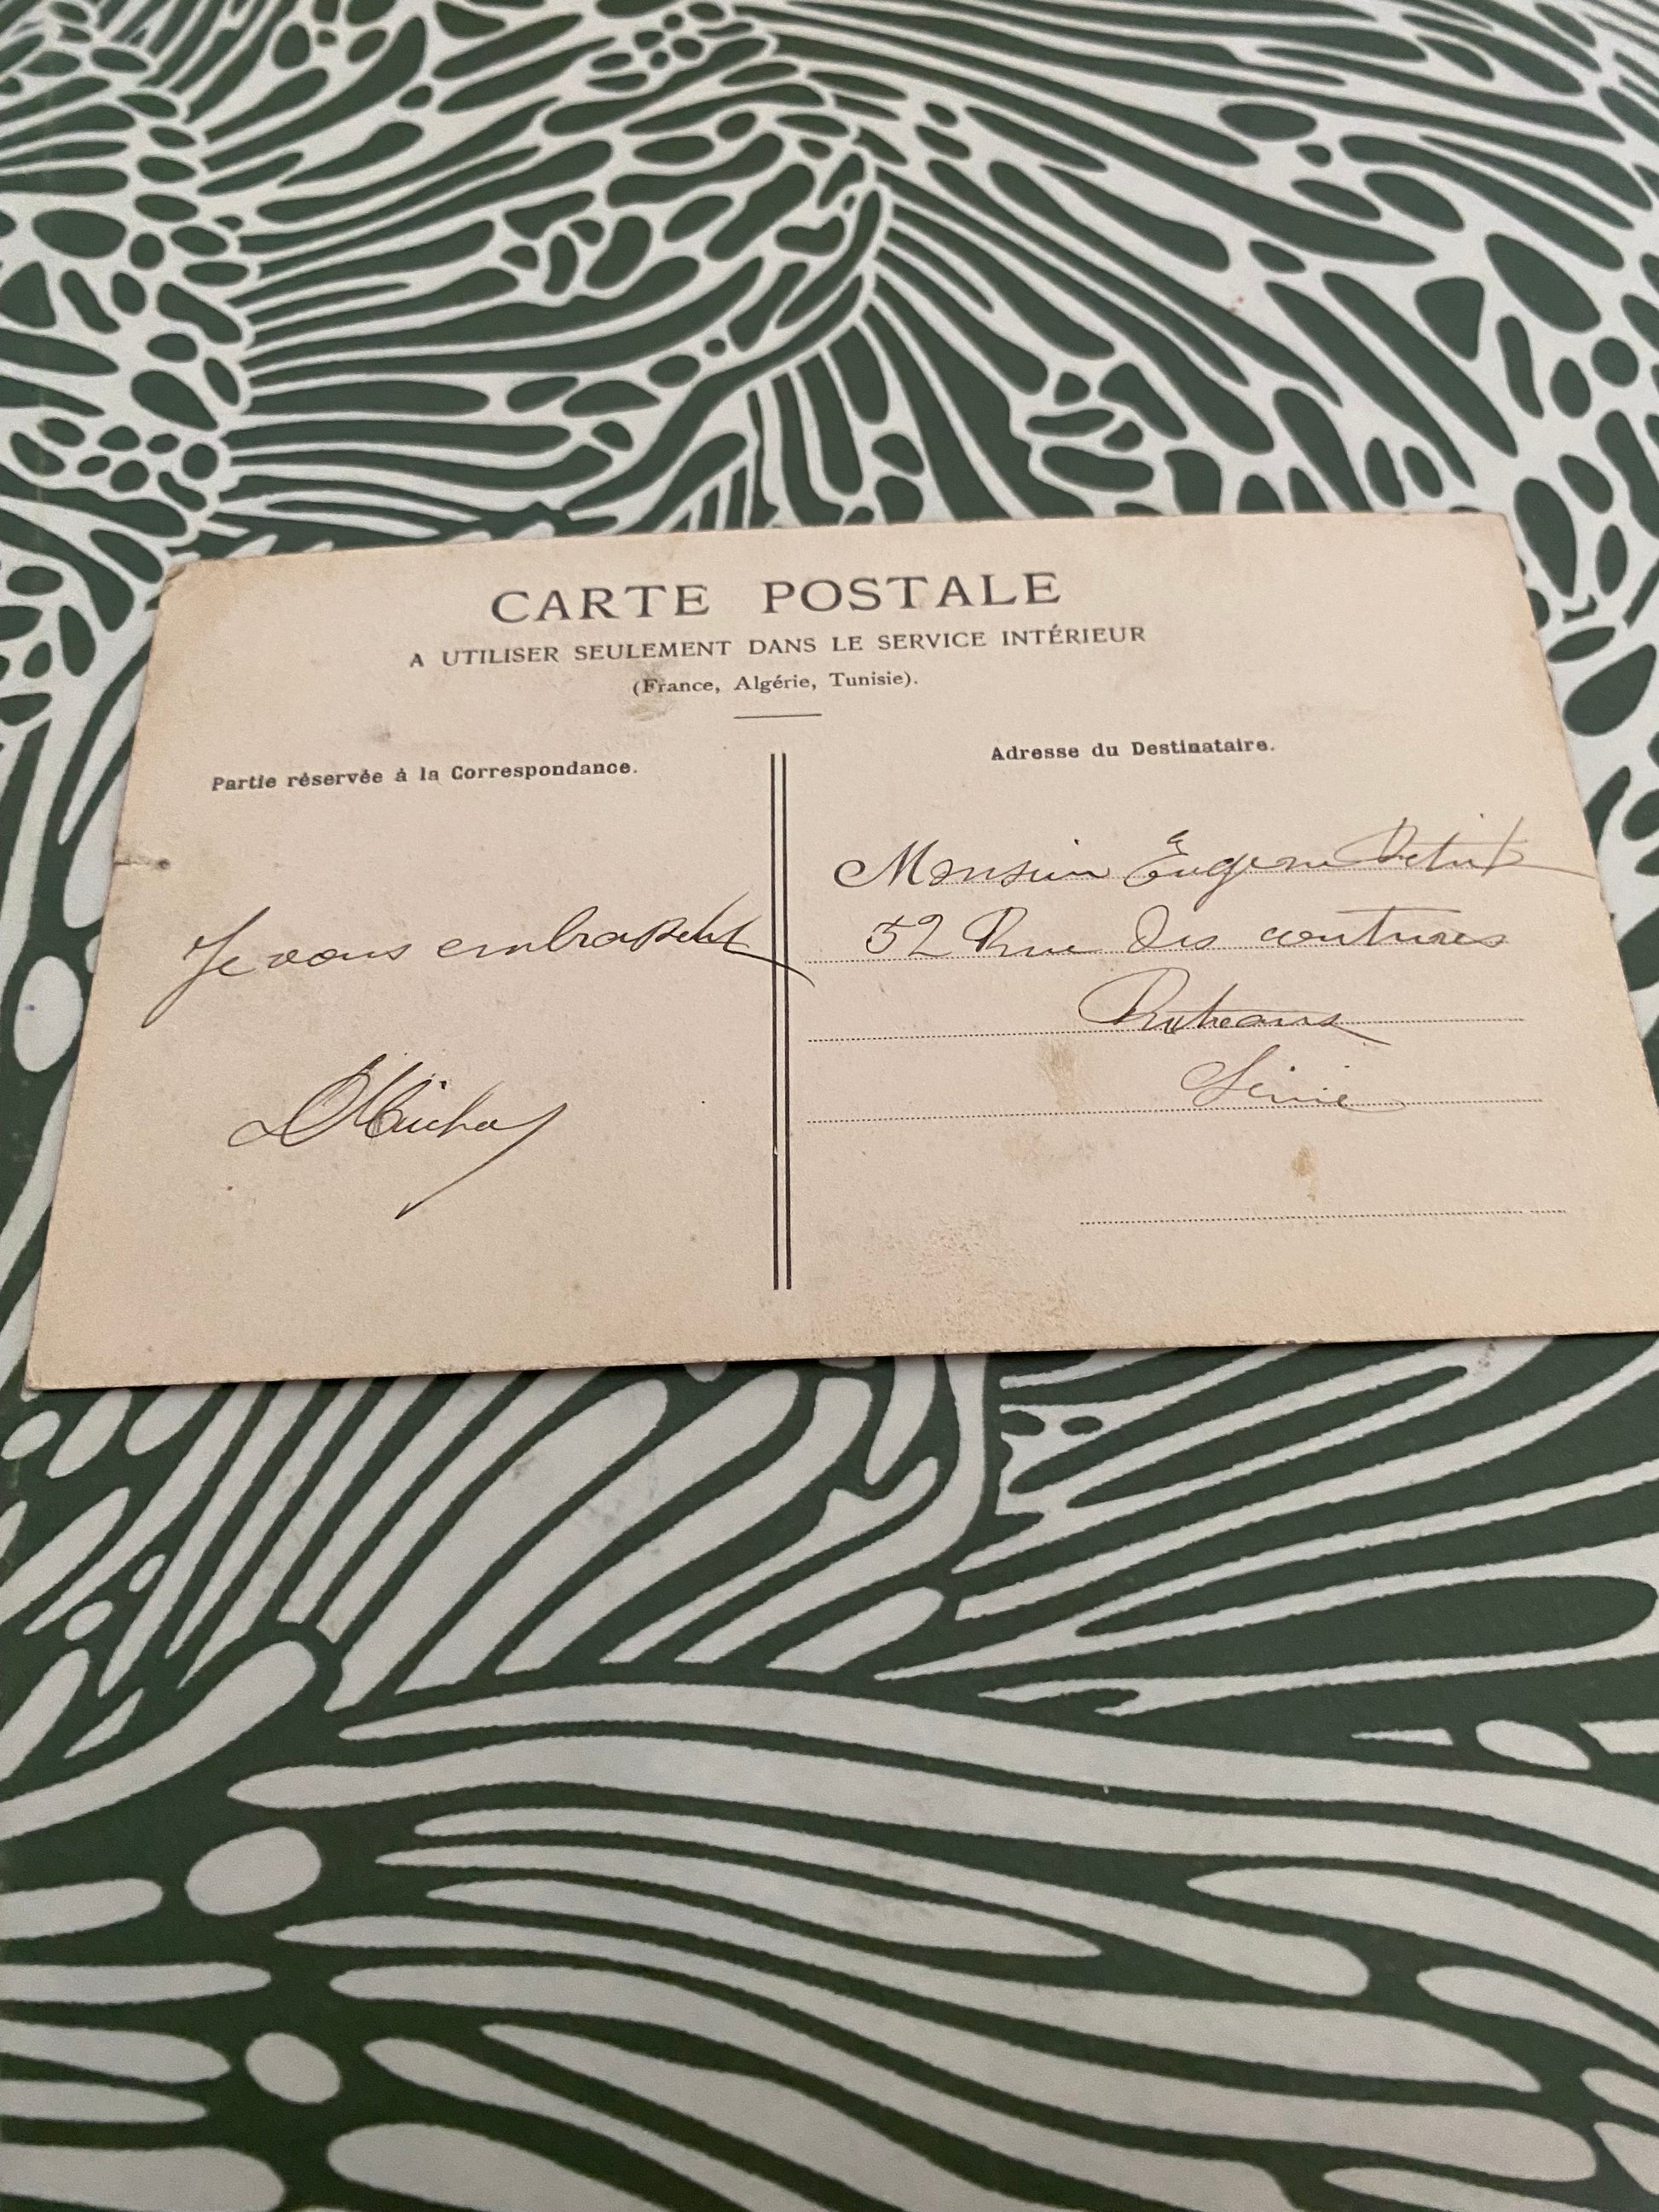 CARTE POSTALE
A UTILISER SEULEMENT DANS LE SERVICE INTÉRIEUR
(France, Algérie, Tunisie).
Partie réservée à la Correspondance.
Je vous
Adresse du Destinataire.
Monsieur Eugène Petit
52 Rue des coutures
Puteaux
Seine